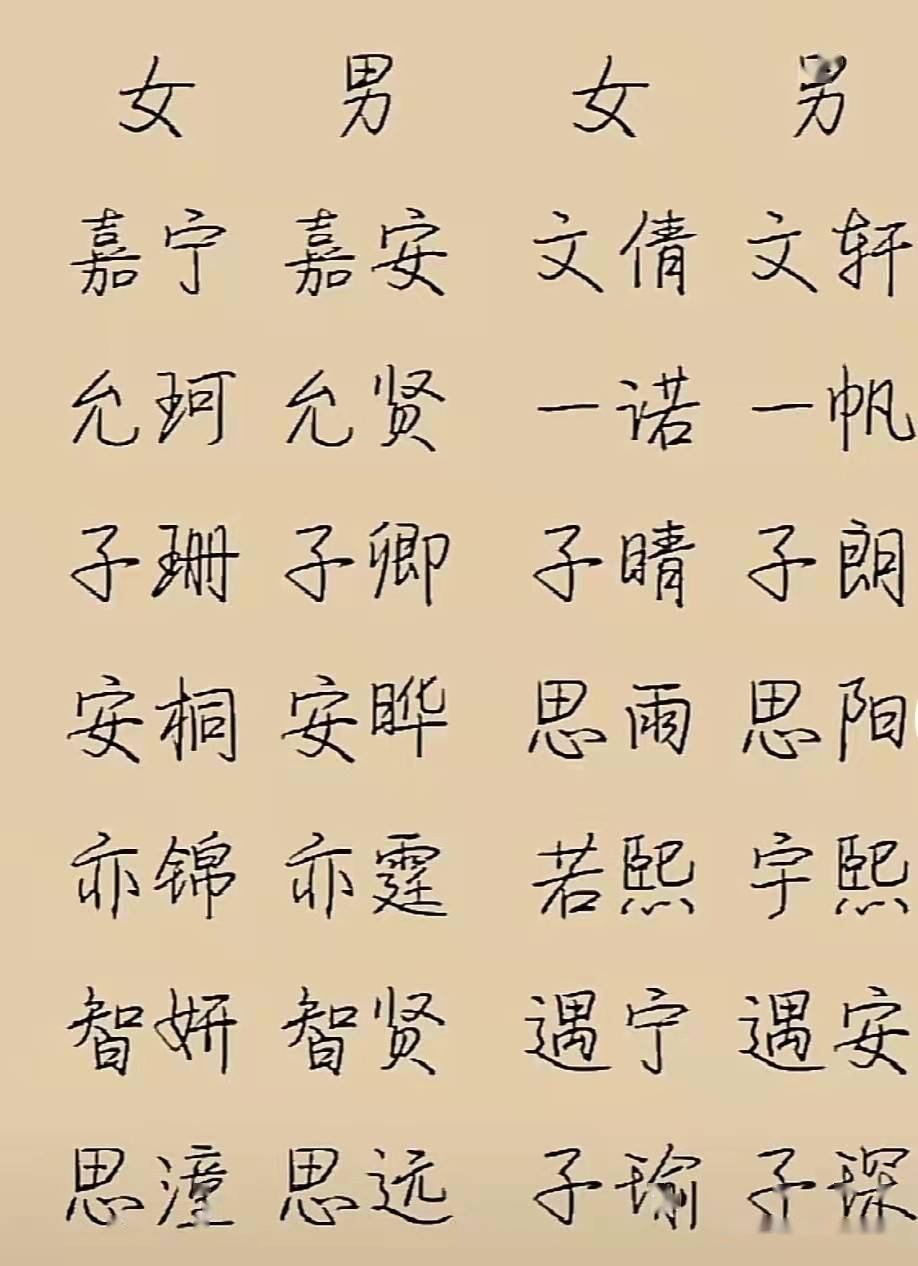 女 男 女 男
嘉宁 嘉安 文倩 文轩
允珂 允贤 一诺 一帆
子珊 子卿 子晴 子朗
安桐 安晔 思雨 思阳
亦锦 亦霆 若熙 宇熙
智妍 智贤 遇宁 遇安
思潼 思远 子瑜 子琛